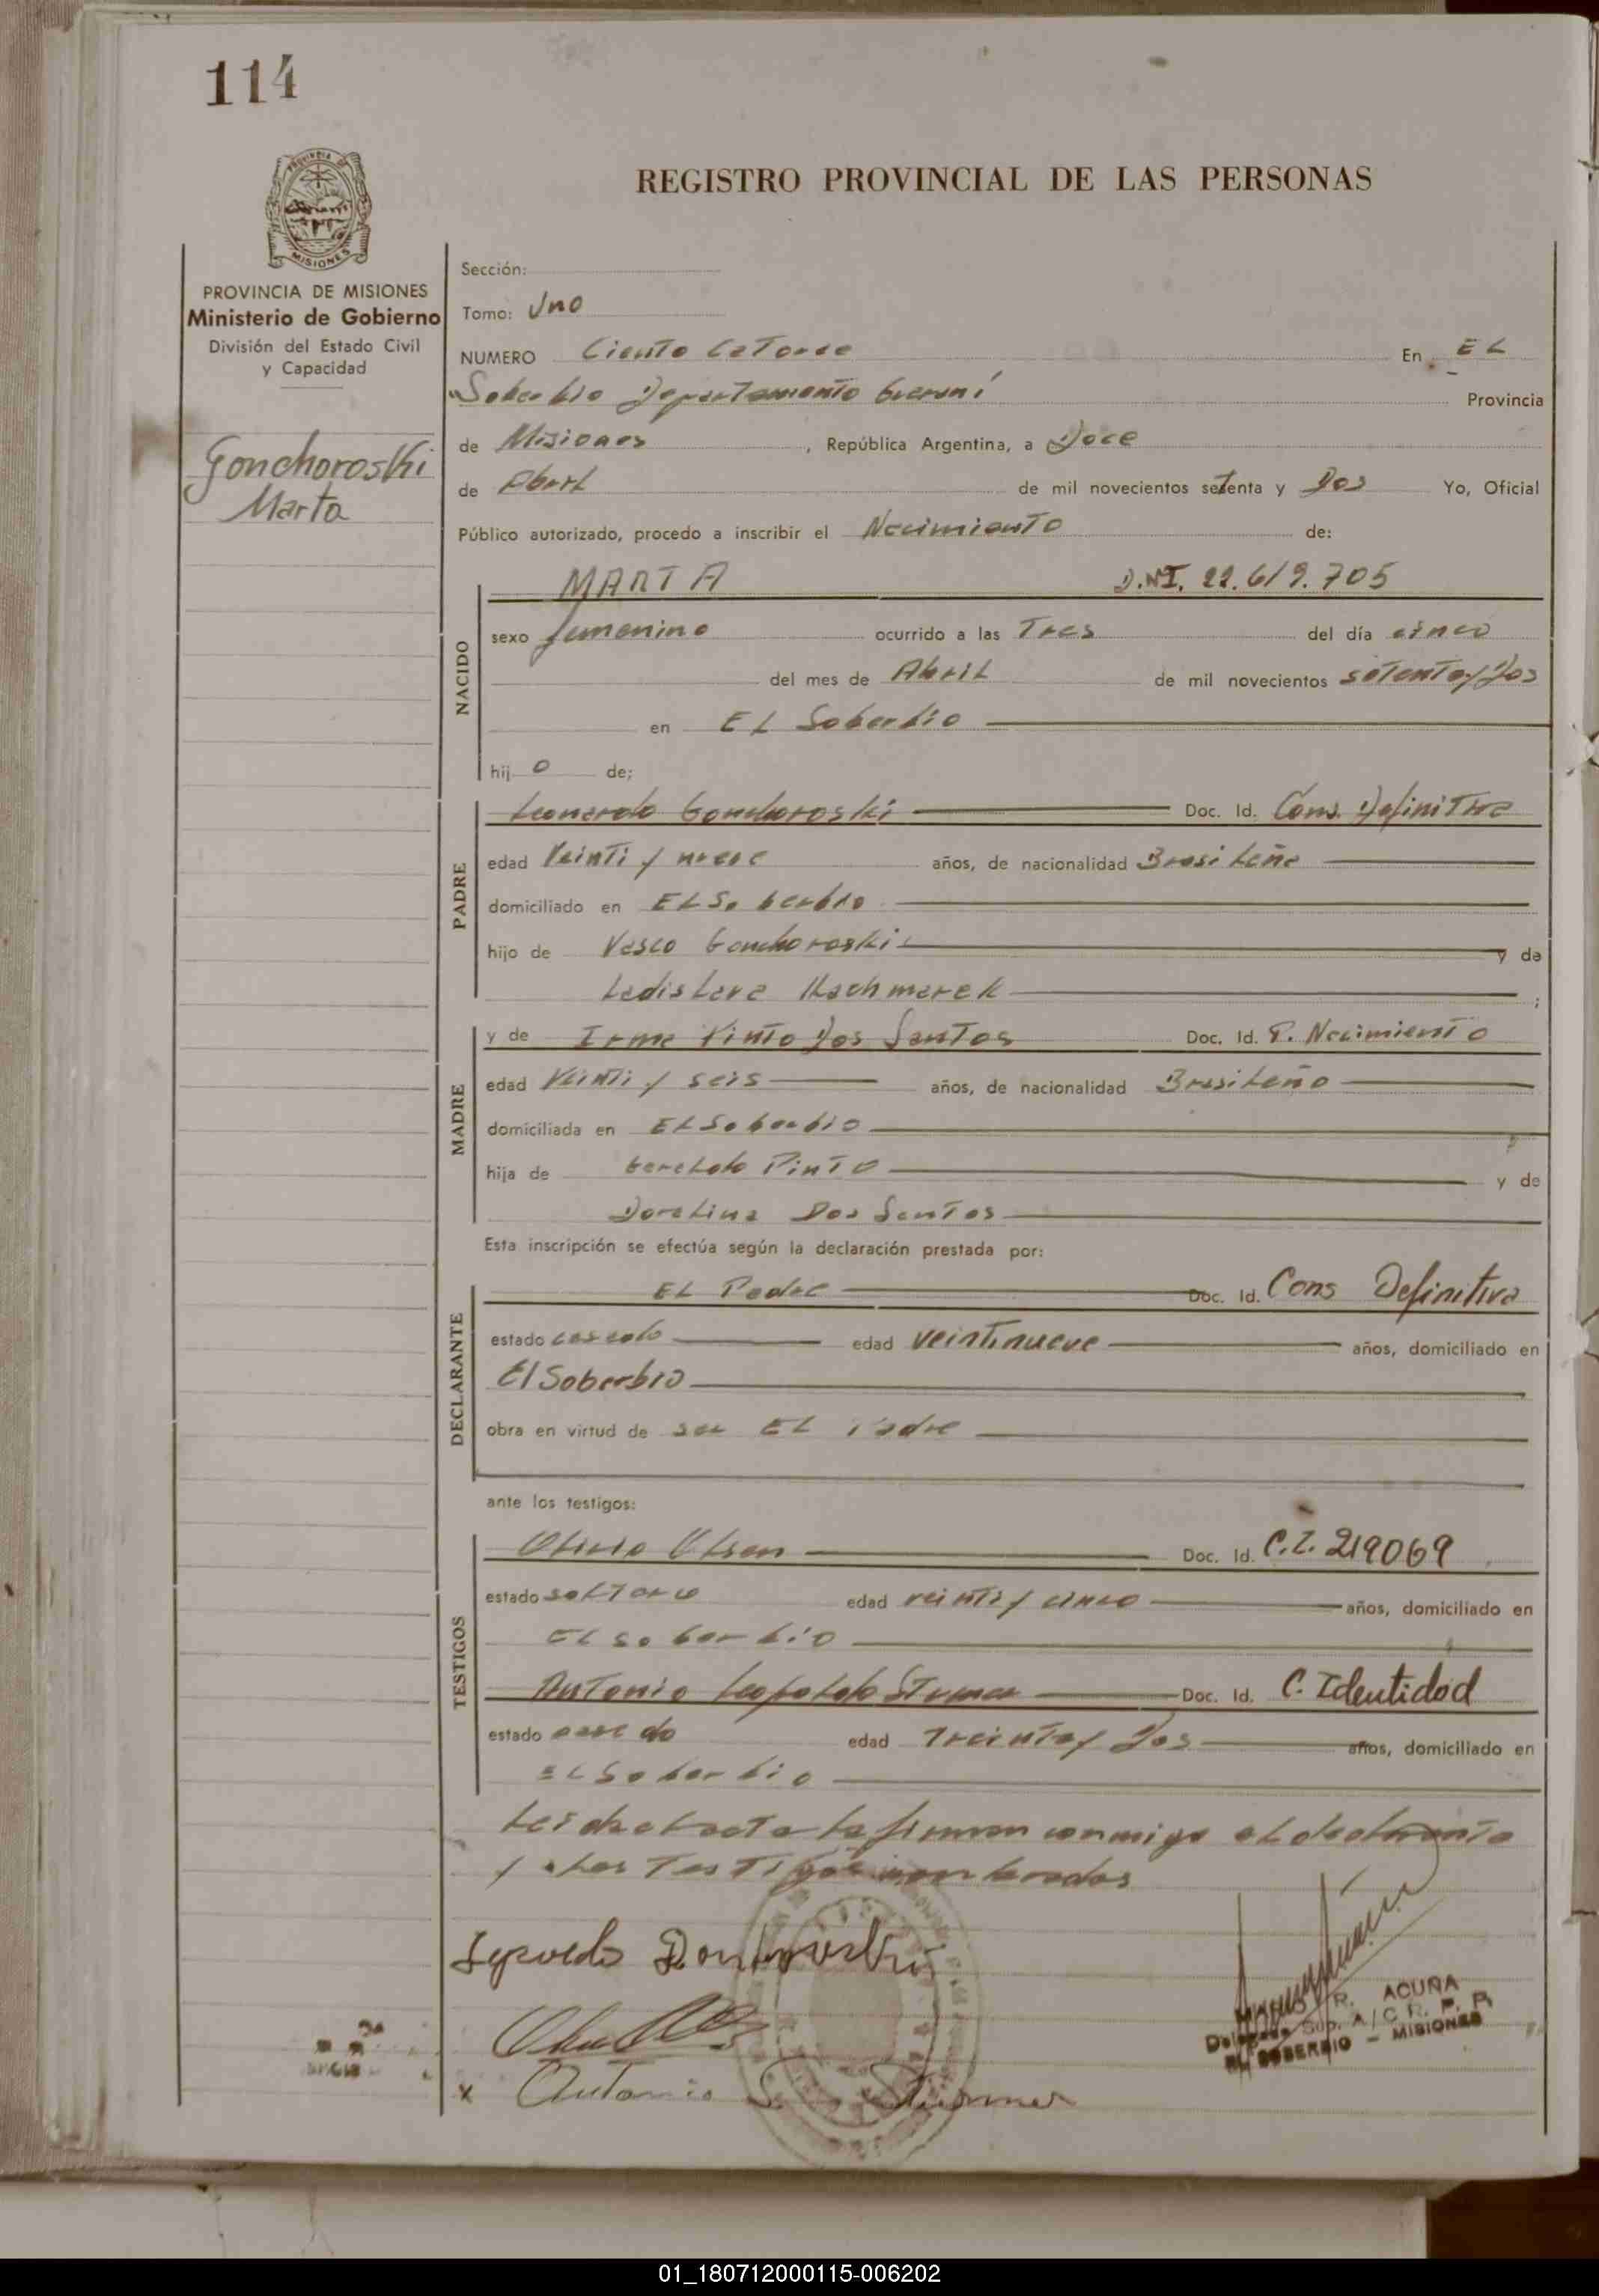 114
PROVINCIA DE
MISIONES
REGISTRO PROVINCIAL DE LAS PERSONAS
PROVINCIA DE MISIONES
Ministerio de Gobierno
División del Estado Civil
y Capacidad
Gonchoroski
Marta
Sección:
Tomo: Uno
NUMERO Ciento Catorce En EL
Soberbio Departamento Guaraní Provincia
de Misiones, República Argentina, a Doce
de Abril de mil novecientos setenta y Dos Yo, Oficial
Público autorizado, procedo a inscribir el Nacimiento de:
NACIDO
MARTA D.N.I. 22.619.705
sexo femenino ocurrido a las Tres del día cinco
del mes de Abril de mil novecientos setenta y Dos
en EL Soberbio
hij o de;
PADRE
Leonardo Gonchoroski Doc. Id. Cons. Definitiva
edad Veinti y nueve años, de nacionalidad Brasileña
domiciliado en EL Soberbio
hijo de Vasco Gonchoroski y de
Ladislava Kachmarek ;
MADRE
y de Irma Pinto Dos Santos Doc. Id. P. Nacimiento
edad Veinti y seis años, de nacionalidad Brasileño
domiciliada en EL Soberbio
hija de Geraldo Pinto y de
Doralina Dos Santos
Esta inscripción se efectúa según la declaración prestada por:
DECLARANTE
EL Padre Doc. Id. Cons Definitiva
estado casado edad veintinueve años, domiciliado en
El Soberbio
obra en virtud de ser EL Padre
ante los testigos:
TESTIGOS
Olivio Olsen Doc. Id. C.I. 219069
estado soltero edad veinti y cinco años, domiciliado en
EL Soberbio
Antonio Leopoldo Doc. Id. C. Identidad
estado casado edad Treinta y Dos años, domiciliado en
EL Soberbio
Leida el acta la firman conmigo el declarante
y los Testigos nombrados
x Antonio Sturmer
R. ACUÑA
Delegado Sup. A/C R. P. P.
EL SOBERBIO - MISIONES
01_180712000115-006202